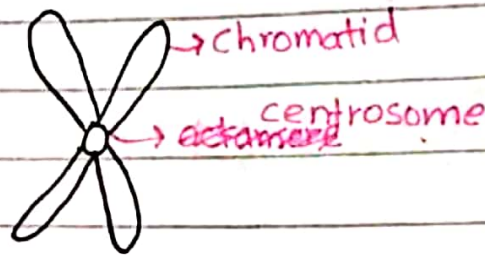 Chromatid
centrosome